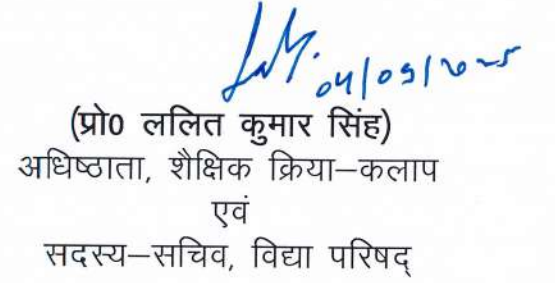 04/09/2025
(प्रो0 ललित कुमार सिंह)
अधिष्ठाता, शैक्षिक क्रिया–कलाप
एवं
सदस्य–सचिव, विद्या परिषद्